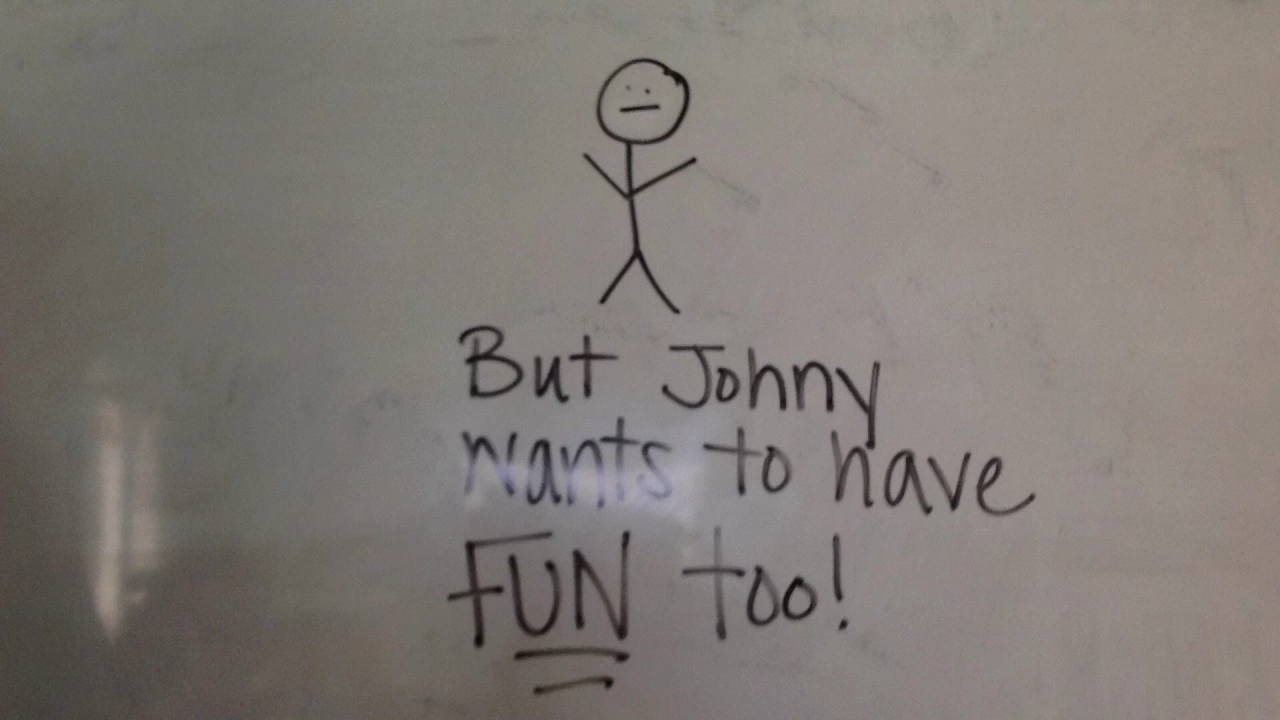 But Johny
wants to have
FUN too!